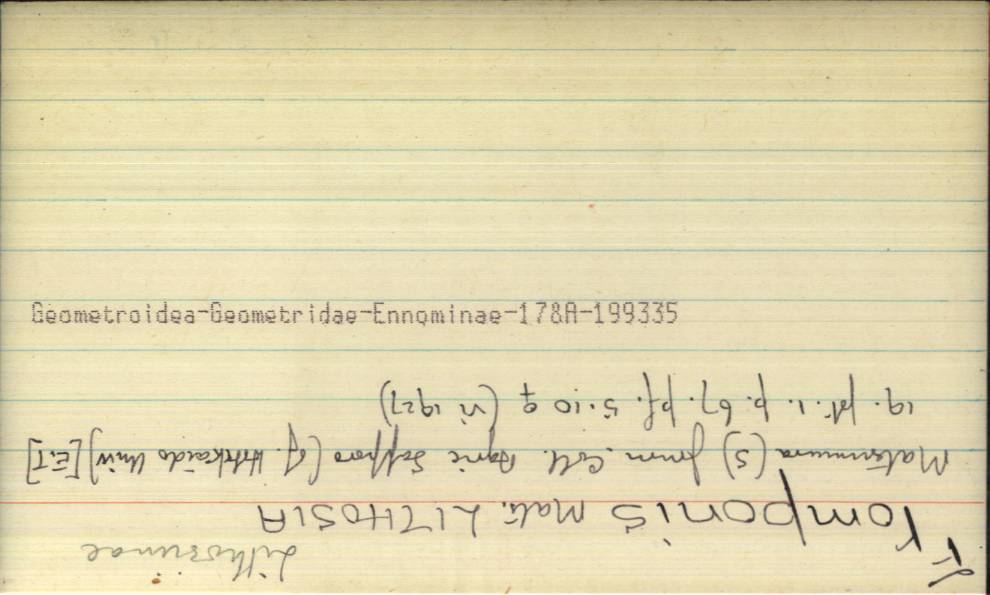 Lithosiinae
Mats. LITHOSIA
Matsumura (S) Journ. Coll. Agric Sapporo (q. Hokkaido Univ) [E.I]
19. pt. 1. p. 67. pl. 5.10 ♀ (vi 1927)
Geometroidea-Geometridae-Ennominae-178A-199335